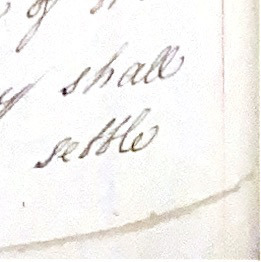 of
y shall
settle